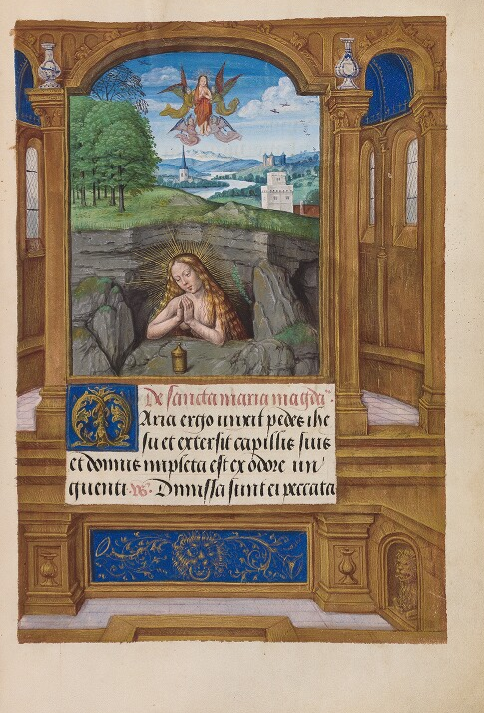 De sancta maria magda.
Maria ergo unxit pedes ihe
su et extersit capillis suis
et domus impleta est ex odore un
guenti. V. Dimissa sunt ei peccata